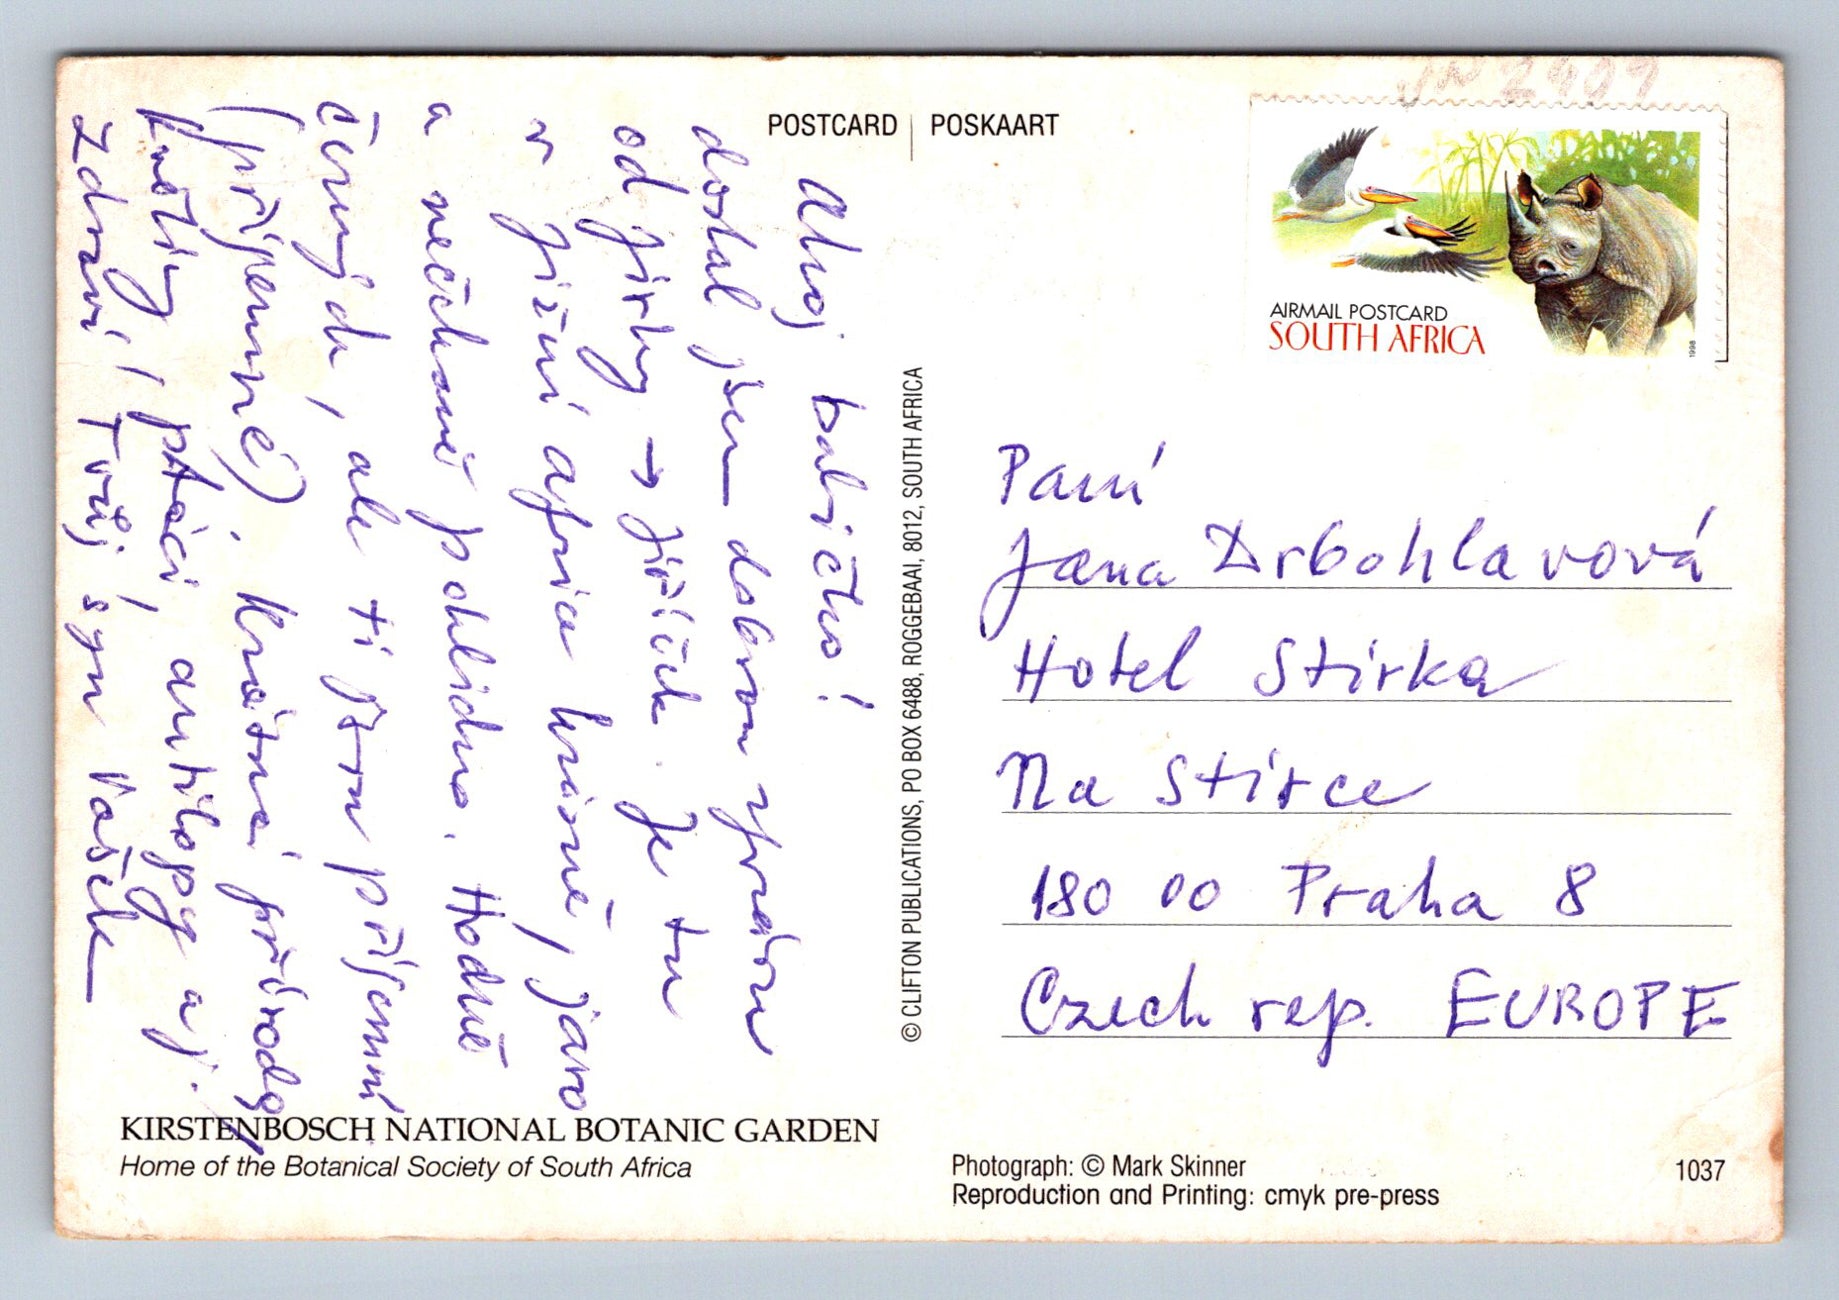 POSTCARD | POSKAART
Ahoj babičko!
dostal jsem dobrou zprávu
od Jirky → Jiříček. Je tu
v Jižní Africe krásně, jaro
a nečekaně pohlidno. Hodně
černých, ale ti jsou příjemní
(příjemné), krásná přírody
květiny, ptáci, antilopy aj.
Zdraví Tvůj syn Vašek
KIRSTENBOSCH NATIONAL BOTANIC GARDEN
Home of the Botanical Society of South Africa
© CLIFTON PUBLICATIONS, PO BOX 6488, ROGGEBAAI, 8012, SOUTH AFRICA
2409
AIRMAIL POSTCARD
SOUTH AFRICA
1998
Paní
Jana Drbohlavová
Hotel Stírka
Na Stírce
180 00 Praha 8
Czech rep. EUROPE
Photograph: © Mark Skinner
Reproduction and Printing: cmyk pre-press
1037